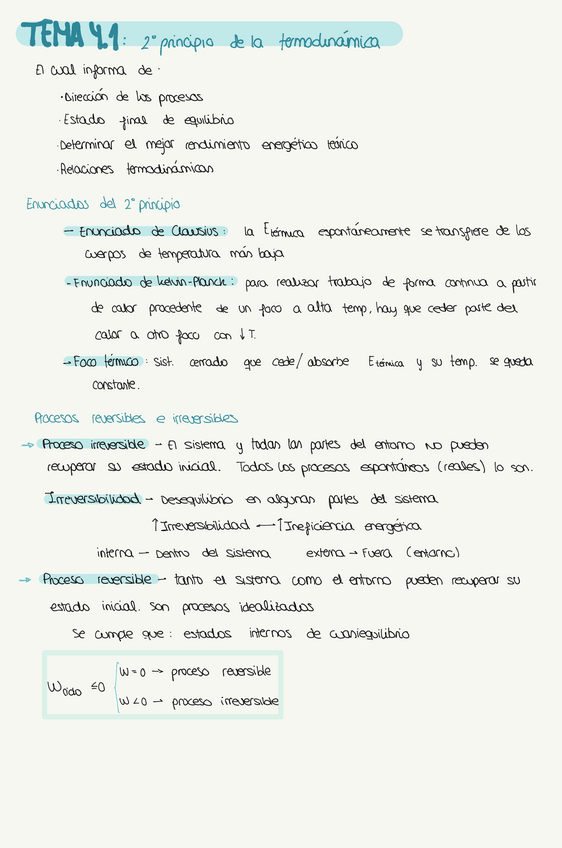 TEMA 4.1: 2º principio de la termodinámica
El cual informa de:
·Dirección de los procesos
·Estado final de equilibrio
·Determinar el mejor rendimiento energético teórico
·Relaciones termodinámicas
Enunciados del 2º principio
- Enunciado de Clausius: la Etérmica espontáneamente se transfiere de los
cuerpos de temperatura más baja
- Enunciado de Kelvin-Planck: para realizar trabajo de forma continua a partir
de calor procedente de un foco a alta temp, hay que ceder parte del
calor a otro foco con ↓ T.
→ Foco térmico: sist. cerrado que cede/absorbe Etérmica y su temp. se queda
constante.
Procesos reversibles e irreversibles
→ Proceso irreversible - El sistema y todas las partes del entorno NO pueden
recuperar su estado inicial. Todos los procesos espontáneos (reales) lo son.
Irreversibilidad - Desequilibrio en algunas partes del sistema
↑Irreversibilidad → ↑Ineficiencia energética
interna - Dentro del sistema externa → Fuera (entorno)
→ Proceso reversible - tanto el sistema como el entorno pueden recuperar su
estado inicial. Son procesos idealizados
Se cumple que: estados internos de cuasiequilibrio
W=0 → proceso reversible
Wciclo ≤0
W<0 → proceso irreversible